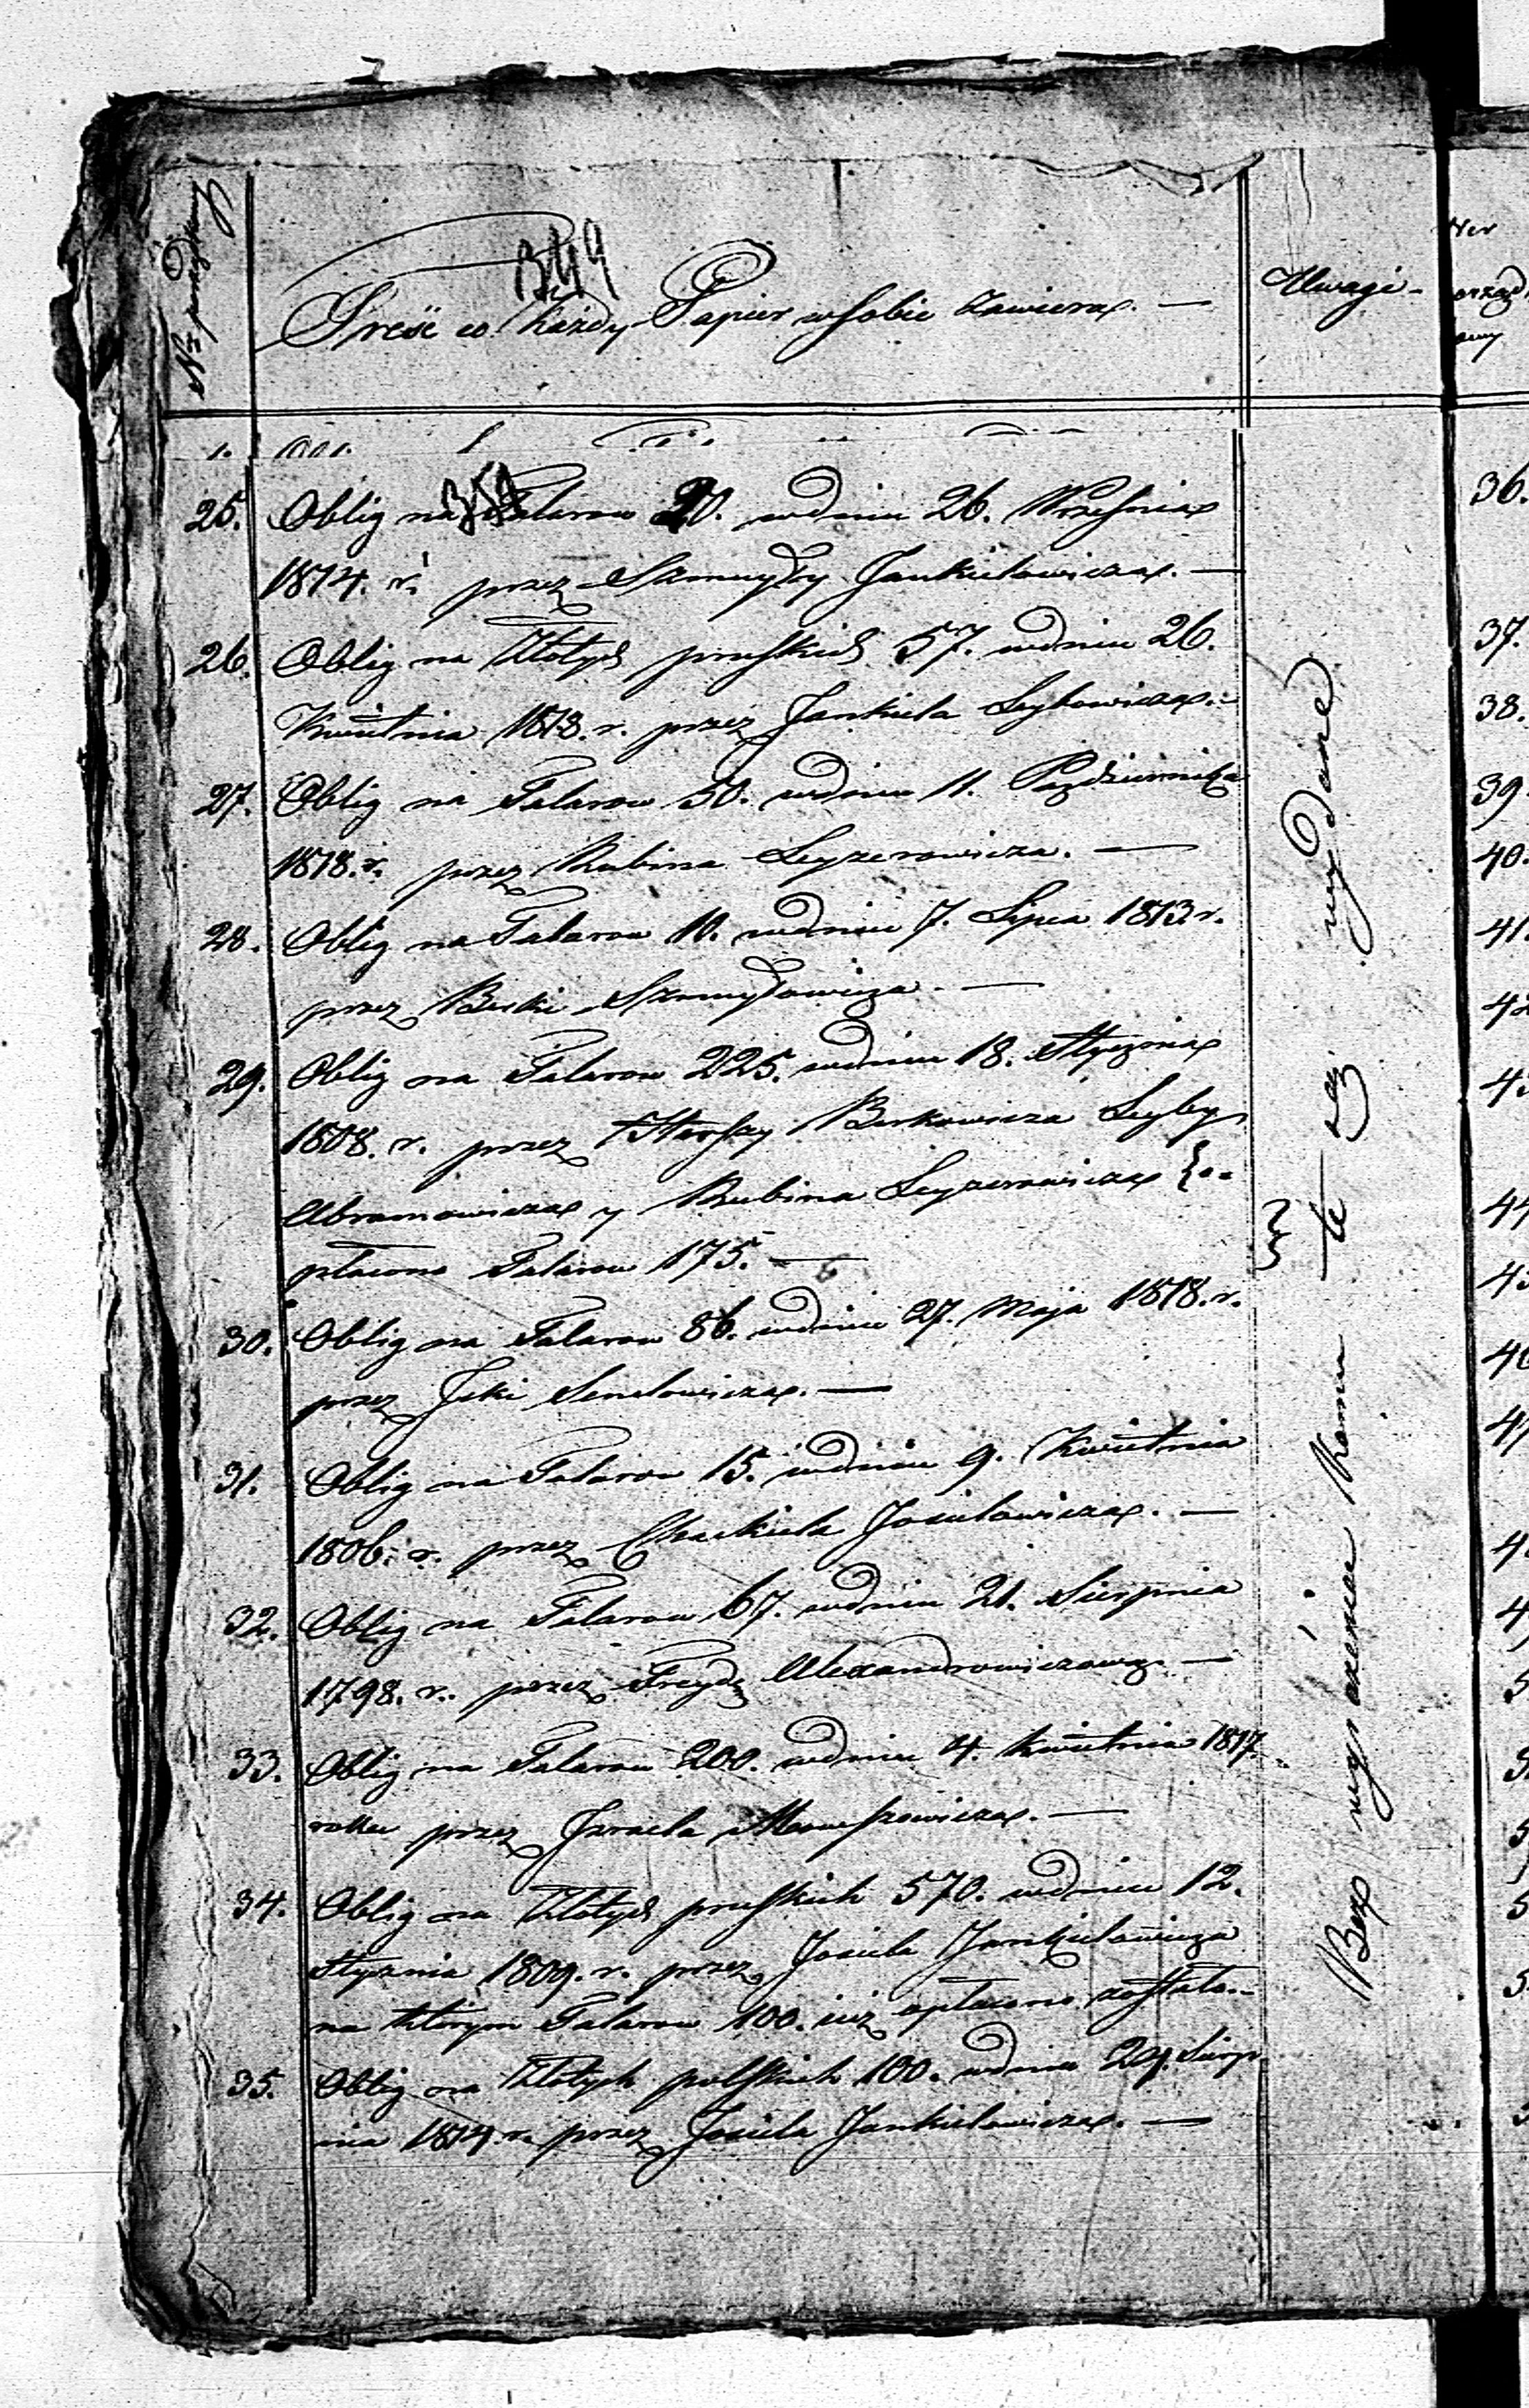 Nro porządkowy
349
Treść co każdy Papier w sobie zawiera. —
Uwagi -
25. Oblig na Talarow 20. w dniu 26. Wrzesnia
1814. r. przez Szmuyły Jankielowicza. —
26. Oblig na Złotych pruskich 57. w dniu 26.
Kwietnia 1818. r. przez Jankiela Leybowicza.-
27. Oblig na Talarow 50. w dniu 11. Października
1818. r. przez Rubina Leyzerowicza. —
28. Oblig na Talarow 10. w dniu 7. Lipca 1813 r.
przez Berki Szmuyłowicza. —
29. Oblig na Talarow 225. w dniu 18. Stycznia
1808. r. przez Herszy Berkowicza Leyby
Abramowicza y Rubina Leyzerowicza
płacono Talarow 175. —
30. Oblig na Talarow 86. w dniu 27. Maja 1818. r.
przez Icki Senelowicza. —
31. Oblig na Talarow 15. w dniu 9. Kwietnia
1806. r. przez Chackiela Josielowicza. —
32. Oblig na Talarow 67. w dniu 21. Sierpnia
1798. r. przez Freydę Alexandrowiczową. —
33. Oblig na Talarow 200. w dniu 4. Kwietnia 1817.
roku przez Izraela Mowszowicza. —
34. Oblig na Złotych pruskich 570. w dniu 12.
Stycznia 1809. r. przez Josiela Jankielowicza
na którym Talarow 100. już opłacono zostało.-
35. Oblig na Złotych polskich 100. w dniu 24. Sierp
nia 1814 r. przez Josiela Jankielowicza. —
Bez wyrażenia komu te są wydane
36.
37.
38.
39
40.
41.